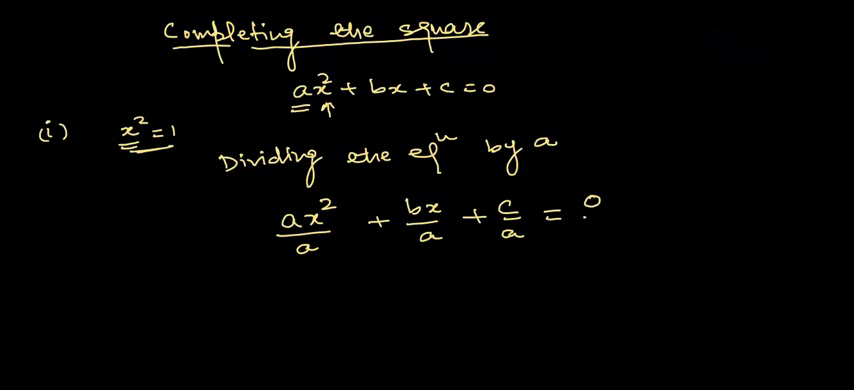 Completing the square
ax² + bx + c = 0
(i) x² = 1
Dividing the eqⁿ by a
ax²/a + bx/a + c/a = 0